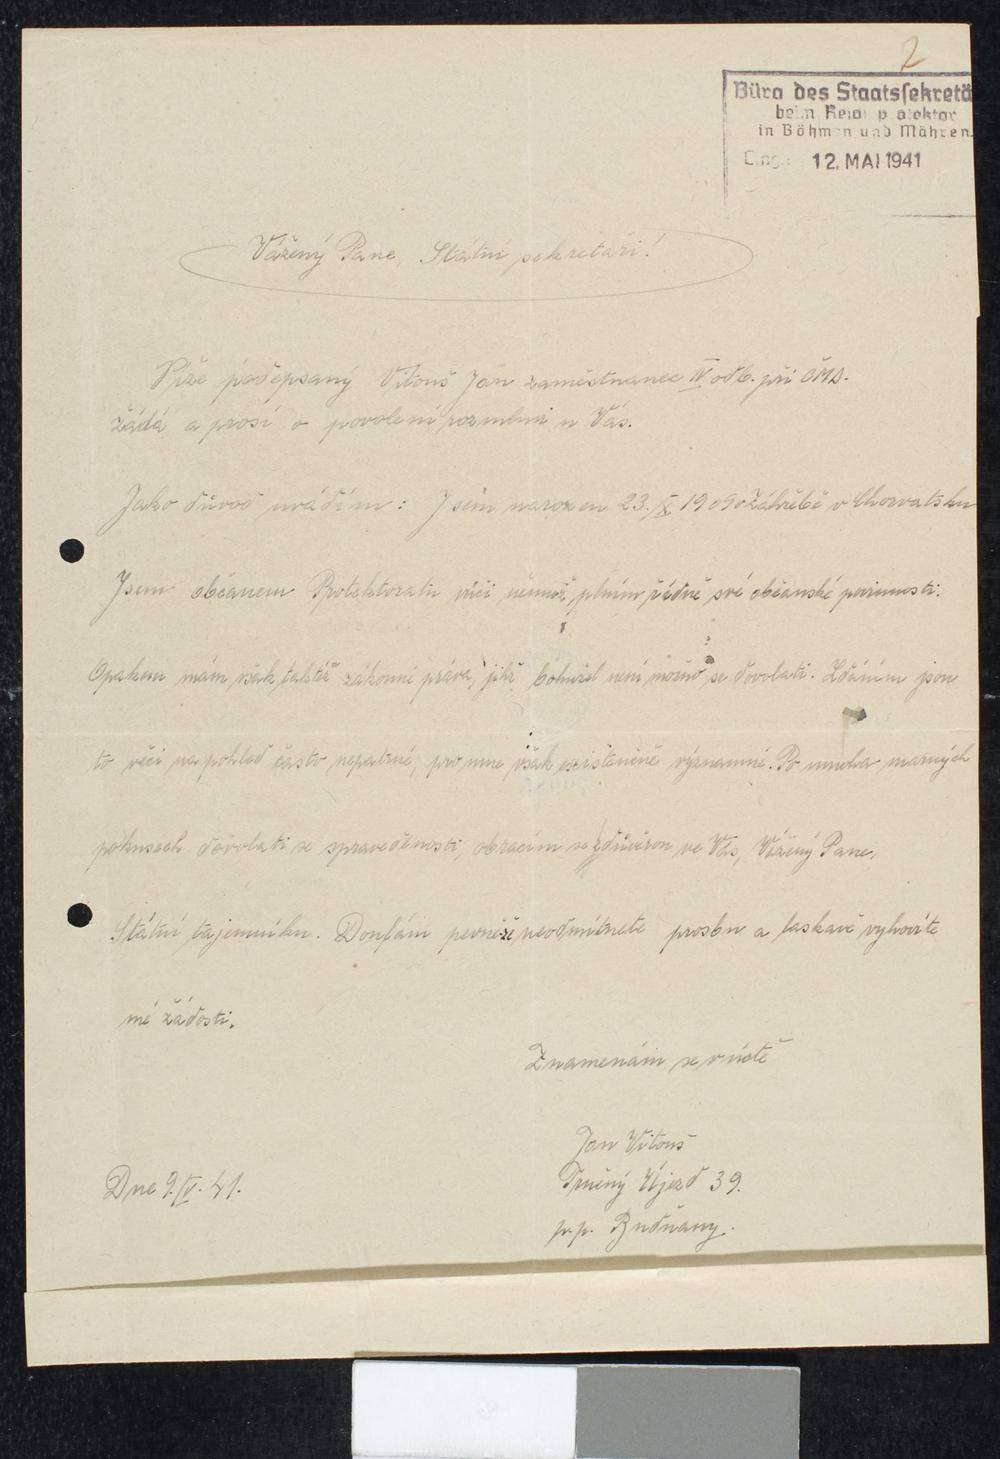 7
Büro des Staatssekretä
beim Reichsprotektor
in Böhmen und Mähren.
Eing.: 12. MAI 1941
Vážený Pane, Státní sekretáři!
Níže podepsaný Vitouš Jan zaměstnanec IV odb. při
žádá a prosí o povolení rozmluvi u Vás.
Jako důvod uvádím: Jsem narozen 23./X. 1909 v Záhřebě v Chorvatsku
Jsem občanem Protektoratu vůči němuž plním řádně své občanské povinnosti.
Opakem mám však taktéž zákonné práva, jichž bohužel není možno se dovolati. Zdáním jsou
to věci na pohled často nepatrné, pro mne však existenčně významné. Po mnoha marných
pokusech dovolati se spravedlnosti, obracím se s důvěrou ve Vás, Vážený Pane,
Státní tajemníku. Doufám pevně že neodmítnete prosbu a laskavě vyhovíte
mé žádosti.
Znamenám se v úctě
Jan Vitouš
Dne 9./IV. 41.
Trněný Újezd 39.
p.p. Budňany.